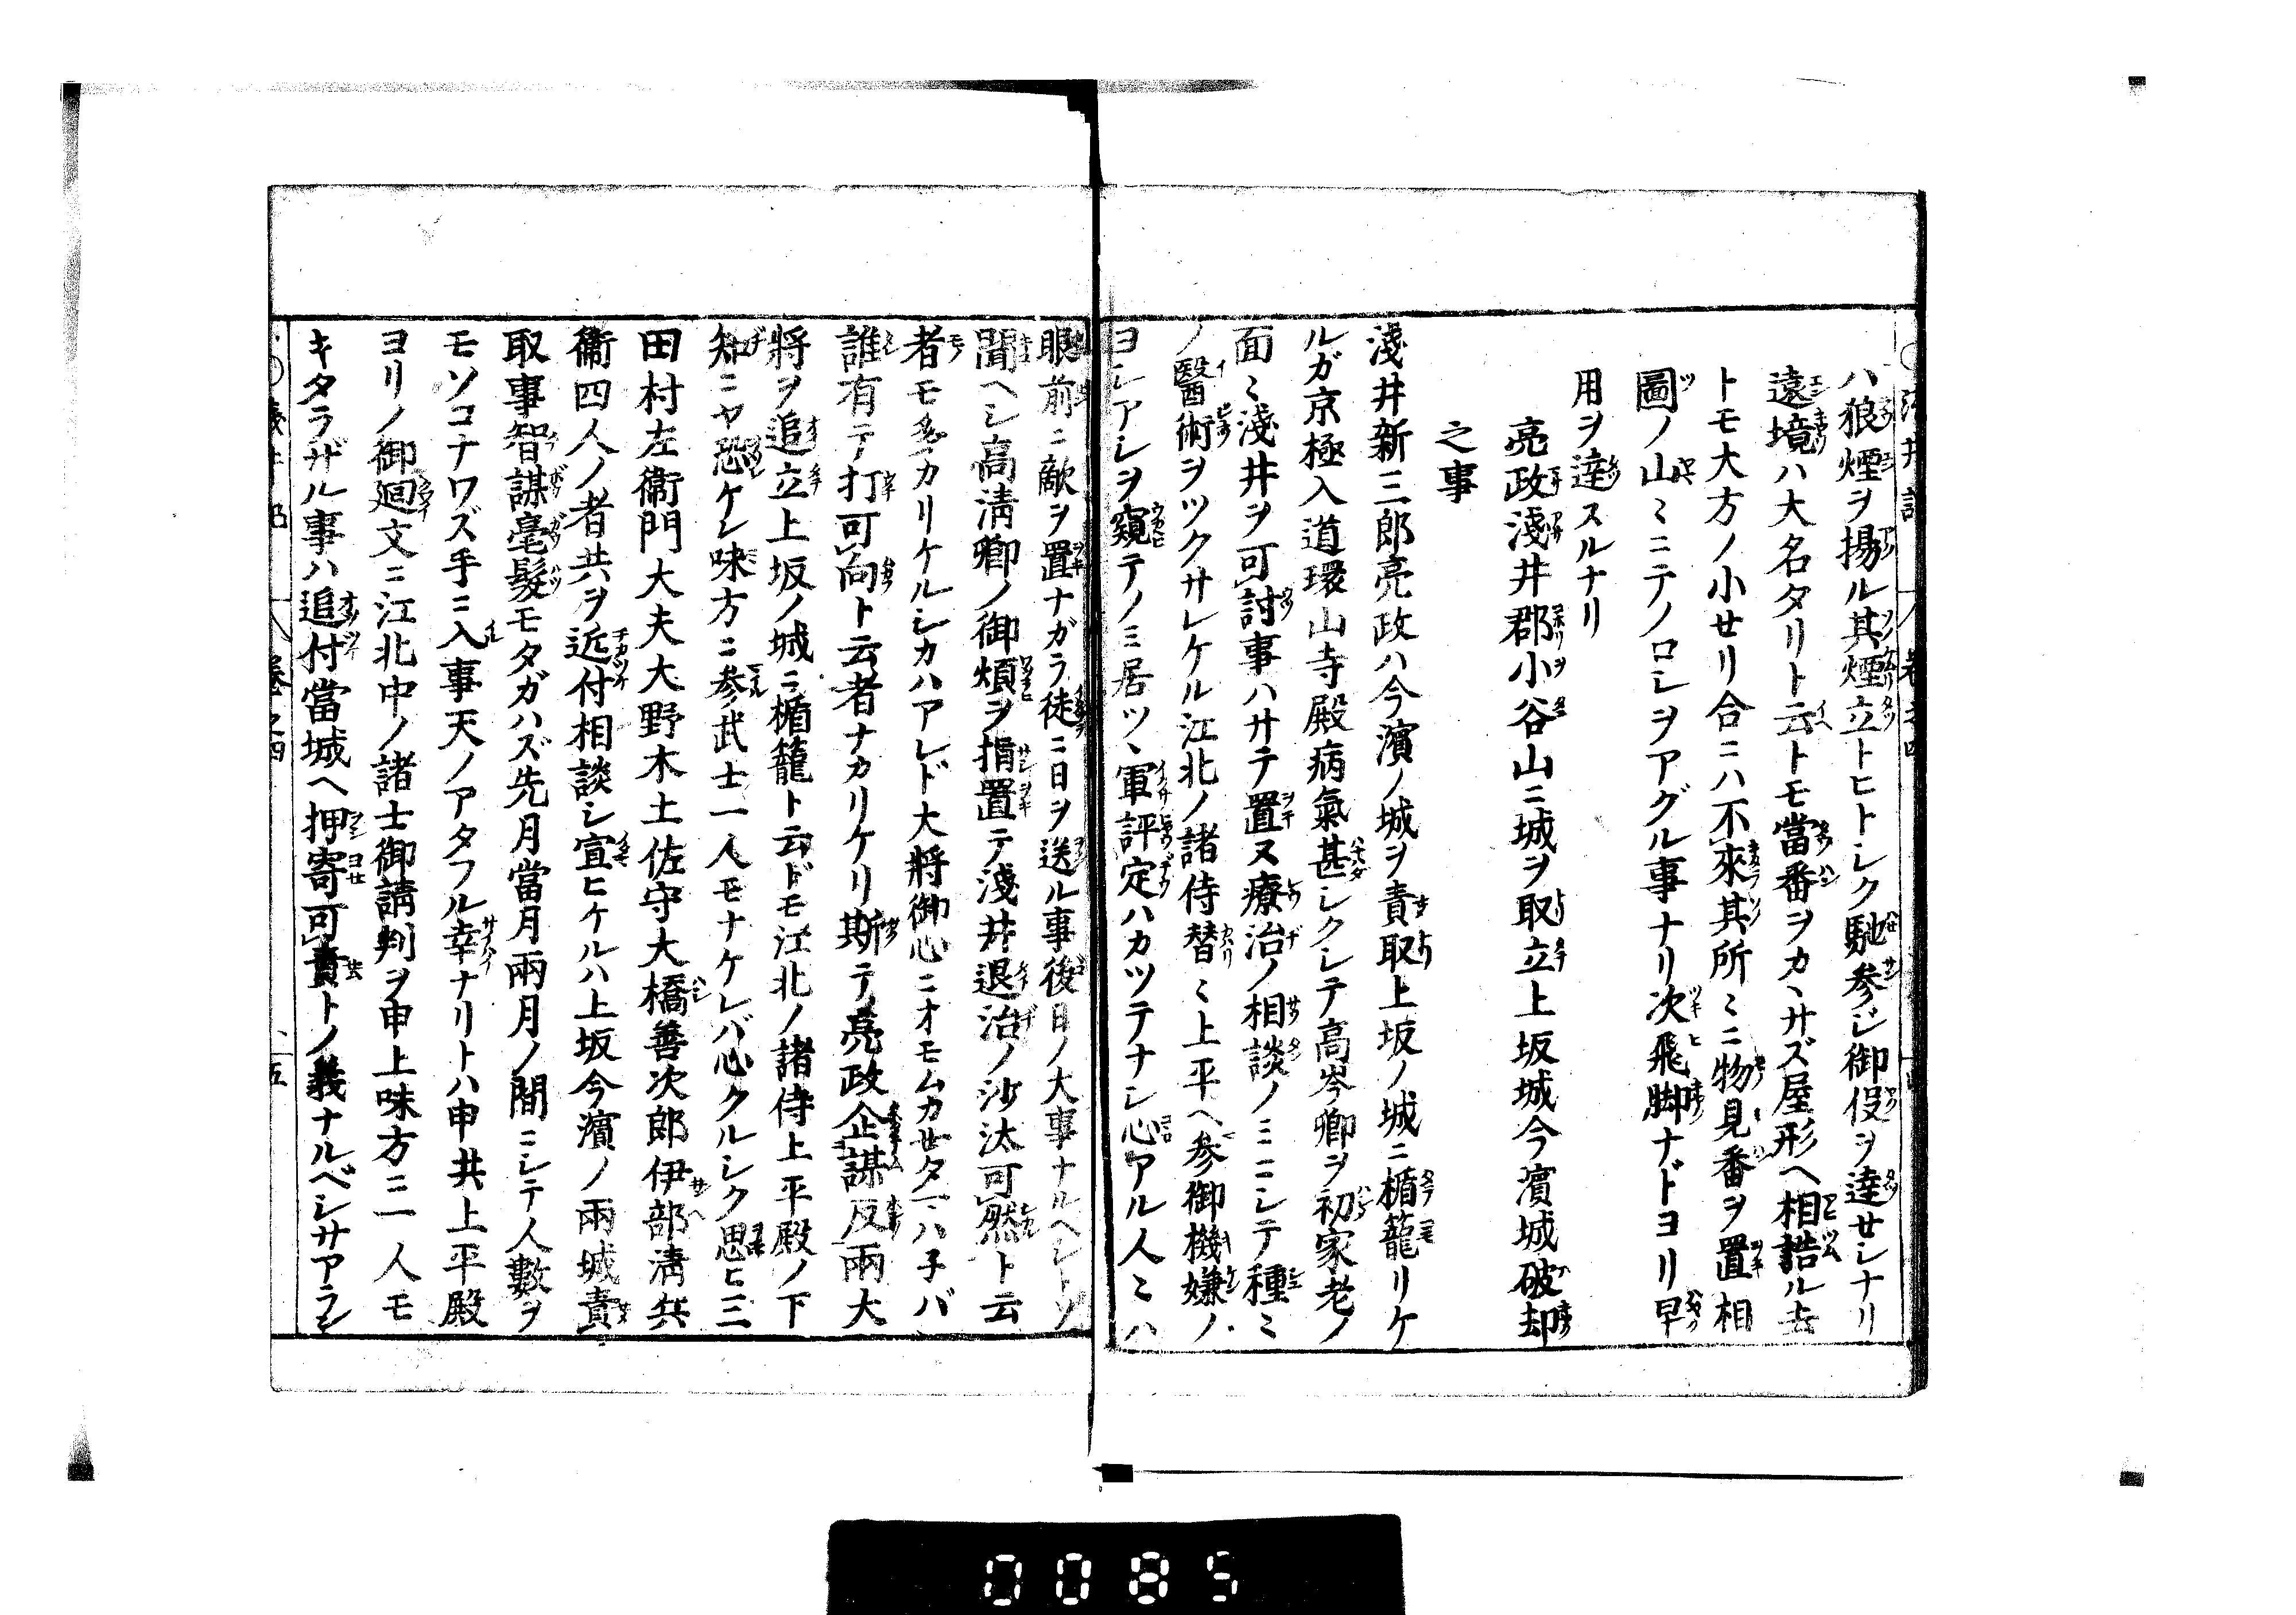 ハ狼煙ヲ揚ル其煙立トヒトシク馳参シ御假ヲ達セシナリ
遠境ハ大名タリト云トモ當番ヲカヽサズ屋形ヘ相詰ル去
トモ大方ノ小せリ合ニハ不來其所〻ニ物見番ヲ置相
圖ノ山〻ニテノロシヲアグル事ナリ次飛脚ナドヨリ早
用ヲ達スルナリ
亮政淺井郡小谷山ニ城ヲ取立上坂城今濱城破却
之事
淺井新三郎亮政ハ今濱ノ城ヲ責取上坂ノ城ニ楯籠リケ
ルガ京極入道環山寺殿病氣甚シクシテ高岑卿ヲ初家老ノ
面〻淺井ヲ可討事ハサテ置ヌ療治ノ相談ノミニシテ種〻
ノ醫術ヲツクサレケル江北ノ諸侍替〻上平ヘ参御機嫌ノ
ヨシアシヲ窺テノミ居ツヽ軍評定ハカツテナシ心アル人〻ハ
眼前ニ敵ヲ置ナガラ徒ニ日ヲ送ル事後日ノ大事ナルヘシトソ
聞ヘシ高清卿ノ御煩ヲ指置テ淺井退治ノ沙汰可然ト云
者モ多カリケルシカハアレド大將御心ニオモムカせタマハ子バ
誰有テ打可向ト云者ナカリケリ斯テ亮政企謀反兩大
將ヲ追立上坂ノ城ニ楯籠ト云ドモ江北ノ諸侍上平殿ノ下
知ニヤ恐ケン味方ニ参武士一人モナケレバ心クルシク思ヒ三
田村左衞門大夫大野木土佐守大橋善次郎伊部清兵
衞四人ノ者共ヲ近付相談シ宣ヒケルハ上坂今濱ノ兩城責
取事智謀毫髪モタガハズ先月當月兩月ノ間ニシテ人數ヲ
モソコナワズ手ニ入事天ノアタフル幸ナリトハ申共上平殿
ヨリノ御廻文ニ江北中ノ諸士御請判ヲ申上味方ニ一人モ
キタラザル事ハ追付當城ヘ押寄可責トノ義ナルベシサアラン
0085